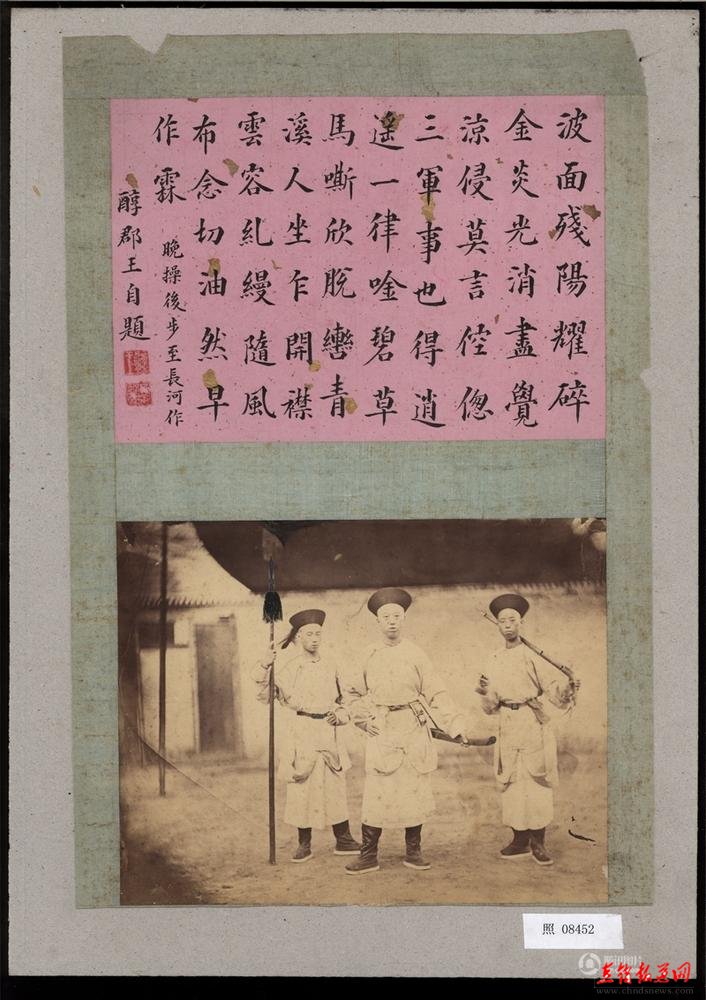 波面殘陽耀碎
金炎光消盡覺
涼侵莫言倥偬
三軍事也得逍
遙一律唫碧草
馬嘶欣脫轡青
溪人坐乍開襟
雲容乣縵隨風
布念切油然早
作霖
晚操後步至長河作
醇郡王自題
照 08452
www.clindsnews.com